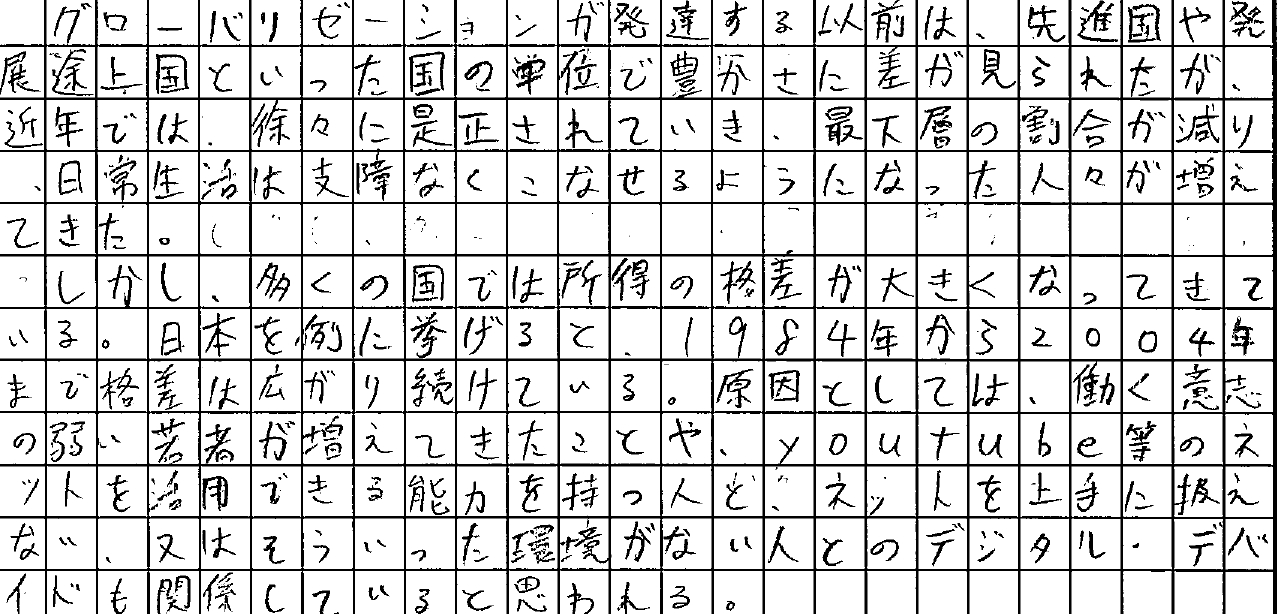 グローバリゼーションが発達する以前は、先進国や発
展途上国といった国の単位で豊かさに差が見られたが、
近年では、徐々に是正されていき、最下層の割合が減り
、日常生活は支障なくこなせるようになった人々が増え
てきた。
しかし、多くの国では所得の格差が大きくなってきて
いる。日本を例に挙げると、1984年から2004年
まで格差は広がり続けている。原因としては、働く意志
の弱い若者が増えてきたことや、youtube等のネ
ットを活用できる能力を持つ人と、ネットを上手に扱え
ない、又はそういった環境がない人とのデジタル・デバ
イドも関係していると思われる。